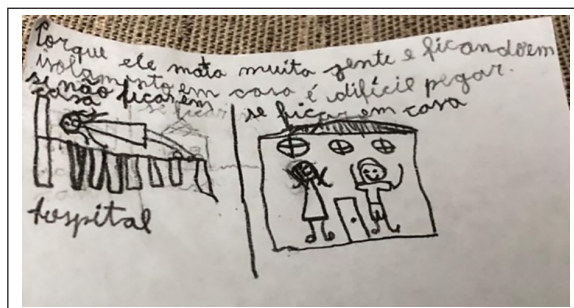 Porque ele mata muita gente e ficando em
isolamento em casa é difícil pegar.
se não ficarem
casa
se ficar em casa
hospital